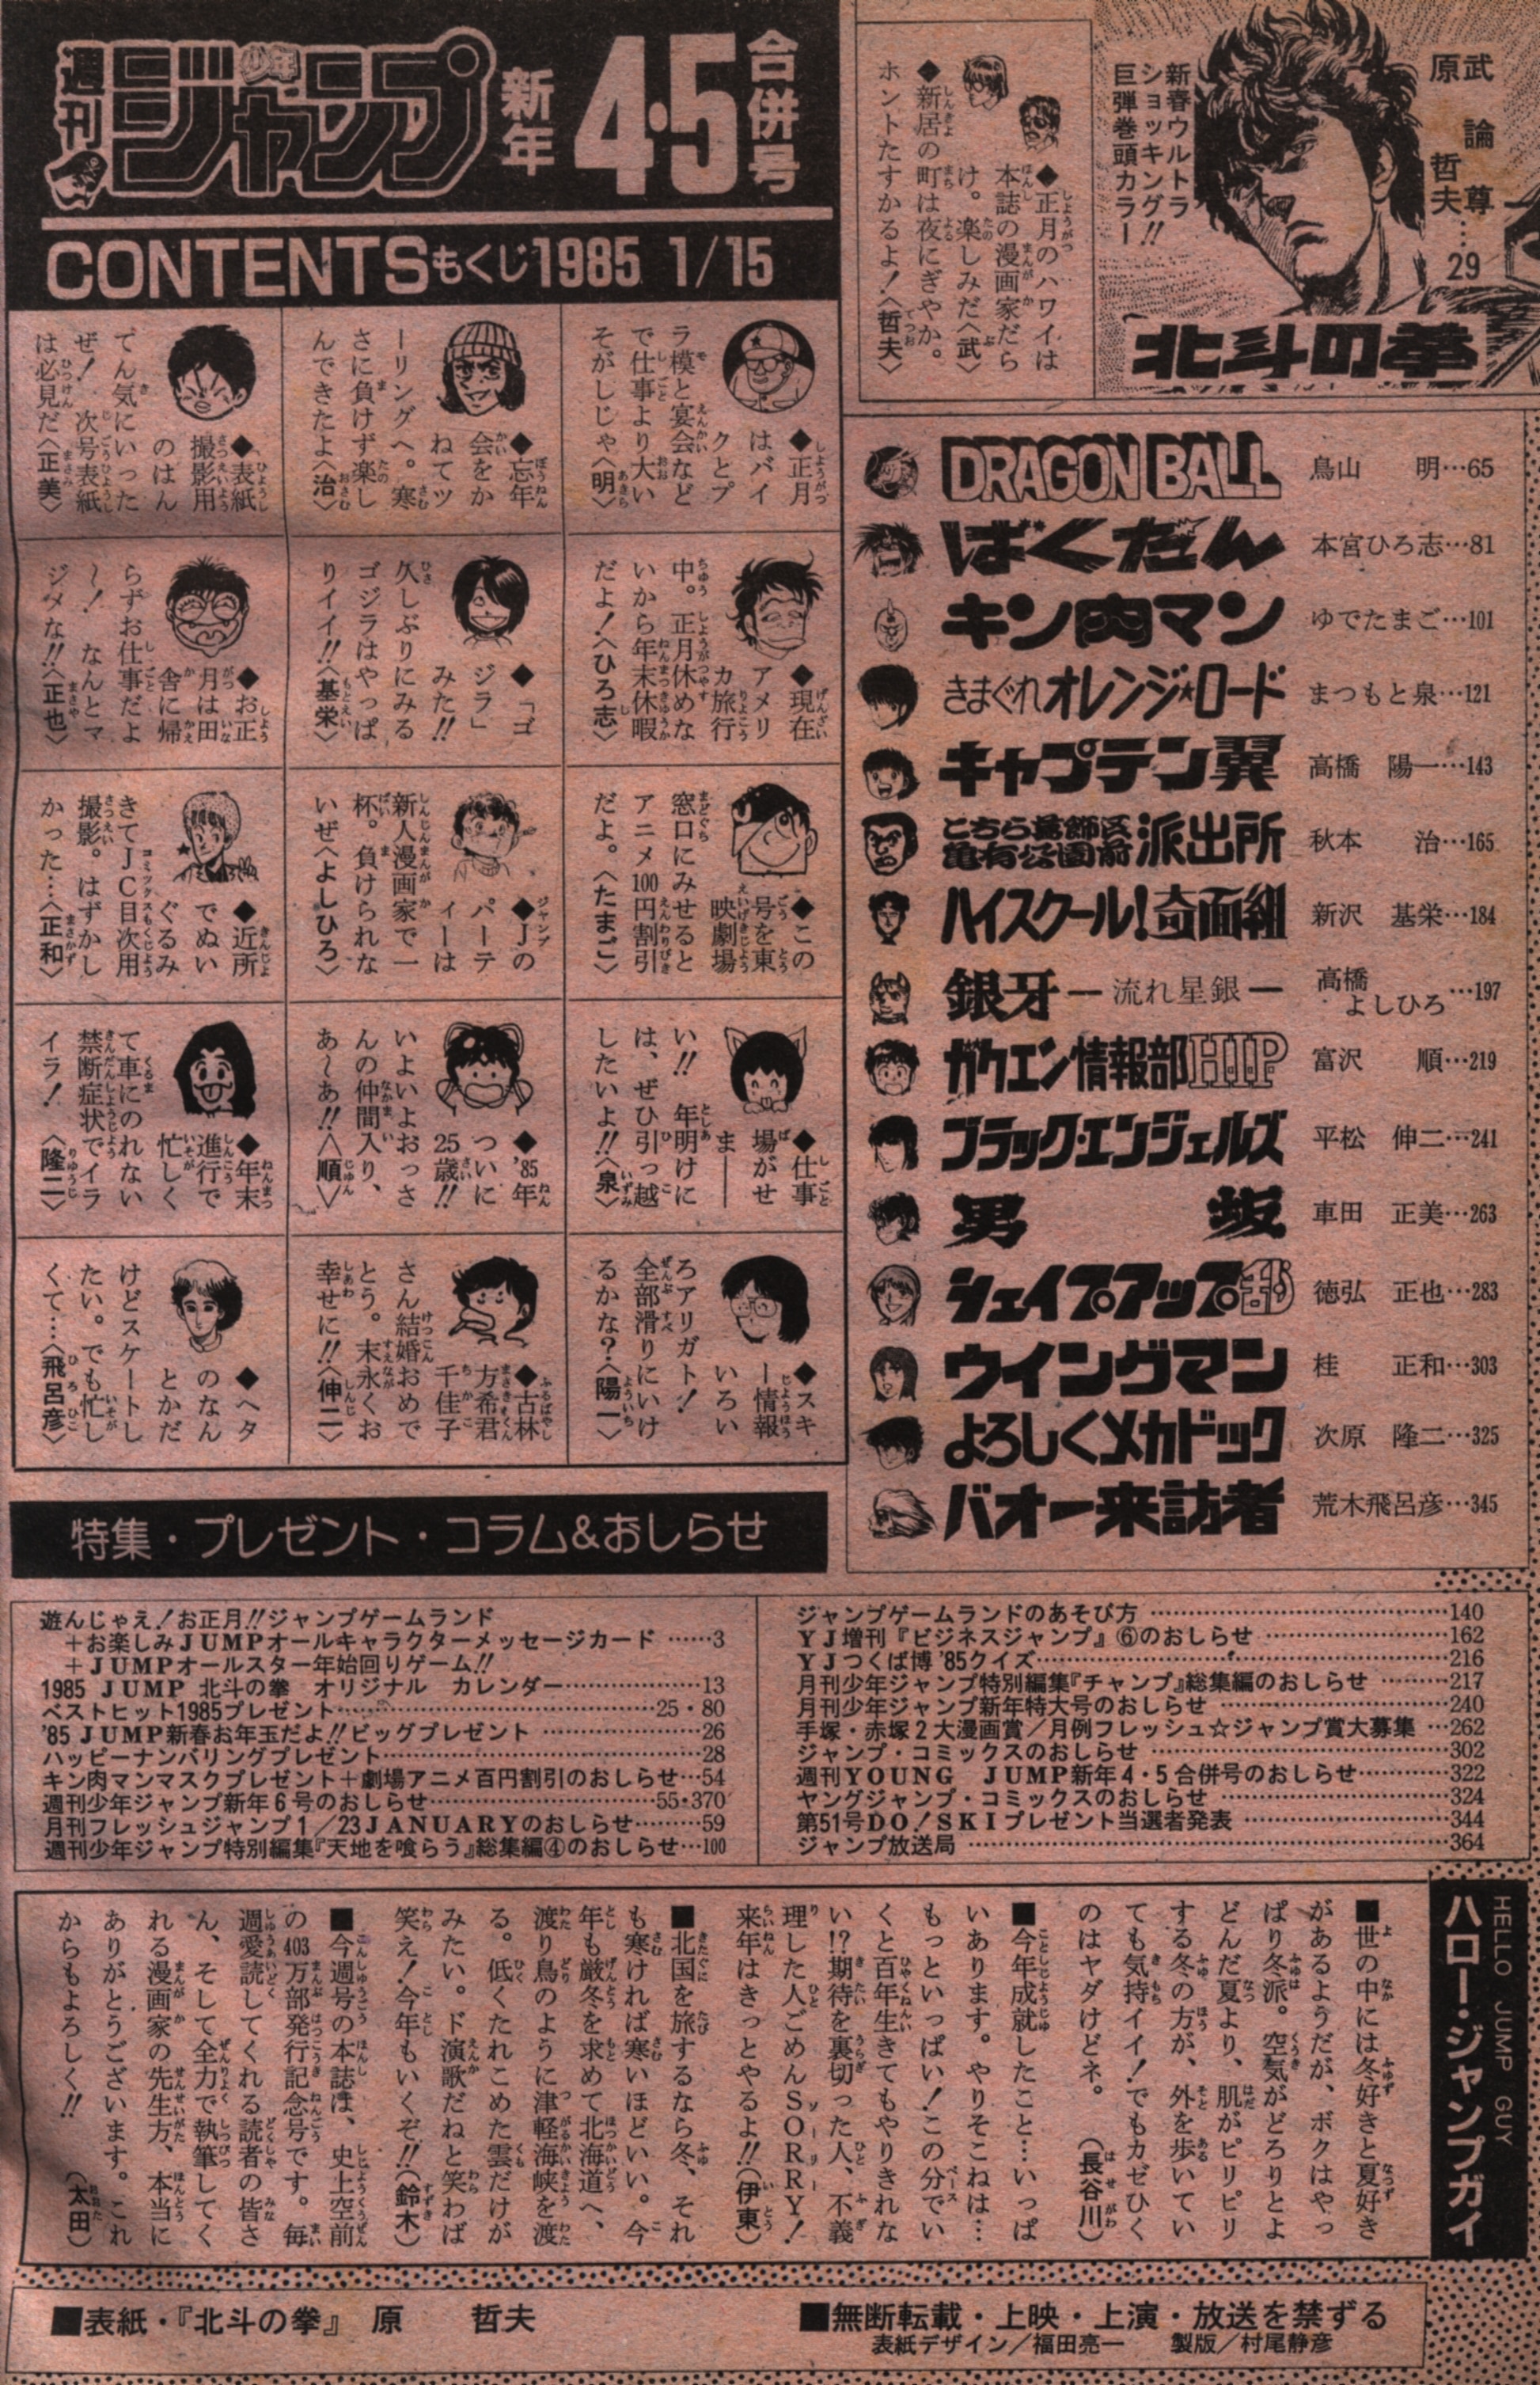 週刊少年ジャンプ 新年4・5合併号
CONTENTSもくじ1985 1/15
武論尊
原 哲夫……29
新春ウルトラ
ショッキング!!
巨弾巻頭カラー
北斗の拳
◆正月のハワイは
本誌の漫画家だら
け。楽しみだ〈武〉
◆新居の町は夜にぎやか。
ホントたすかるよ!〈哲夫〉
DRAGON BALL 鳥山 明…65
ばくだん 本宮ひろ志…81
キン肉マン ゆでたまご…101
きまぐれオレンジ★ロード まつもと泉…121
キャプテン翼 高橋 陽一…143
こちら葛飾区亀有公園前派出所 秋本 治…165
ハイスクール!奇面組 新沢 基栄…184
銀牙―流れ星銀― 高橋よしひろ…197
ガクエン情報部HIP 富沢 順…219
ブラック・エンジェルズ 平松 伸二…241
男坂 車田 正美…263
シェイプアップ乱 徳弘 正也…283
ウイングマン 桂 正和…303
よろしくメカドック 次原 隆二…325
バオー来訪者 荒木飛呂彦…345
◆正月
はバイ
クとプ
ラ模と宴会など
で仕事より大い
そがしじゃ〈明〉
◆忘年
会をか
ねてツ
ーリングへ。寒
さに負けず楽し
んできたよ〈治〉
◆表紙
撮影用
のはん
てん気にいった
ぜ! 次号表紙
は必見だ〈正美〉
◆現在
アメリ
カ旅行
中。正月休めな
いから年末休暇
だよ!〈ひろ志〉
◆「ゴ
ジラ」
みた!!
久しぶりにみる
ゴジラはやっぱ
りイイ!!〈基栄〉
◆お正
月は田
舎に帰
らずお仕事だよ
〜! なんとマ
ジメな!!〈正也〉
◆この
号を東
映劇場
窓口にみせると
アニメ100円割引
だよ。〈たまご〉
◆Jの
パーテ
ィーは
新人漫画家で一
杯。負けられな
いぜ〈よしひろ〉
◆近所
でぬい
ぐるみ
きてJC目次用
撮影。はずかし
かった…〈正和〉
◆仕事
場がせ
ま――
い!! 年明けに
は、ぜひ引っ越
したいよ!!〈泉〉
◆'85年
ついに
25歳!!
いよいよおっさ
んの仲間入り、
あ〜あ!!〈順〉
◆年末
進行で
忙しく
て車にのれない
禁断症状でイラ
イラ! 〈隆二〉
◆スキ
ー情報
いろい
ろアリガト!
全部滑りにいけ
るかな?〈陽一〉
◆古林
方希君
千佳子
さん結婚おめで
とう。末永くお
幸せに!!〈伸二〉
◆ヘタ
のなん
とかだ
けどスケートし
たい。でも忙し
くて…〈飛呂彦〉
特集・プレゼント・コラム&おしらせ
遊んじゃえ!お正月!!ジャンプゲームランド
+お楽しみJUMPオールキャラクターメッセージカード ……3
+JUMPオールスター年始回りゲーム!!
1985 JUMP 北斗の拳 オリジナル カレンダー………………13
ベストヒット1985プレゼント………………25・80
'85 JUMP新春お年玉だよ!!ビッグプレゼント ………………26
ハッピーナンバリングプレゼント………………28
キン肉マンマスクプレゼント+劇場アニメ百円割引のおしらせ…54
週刊少年ジャンプ新年6号のおしらせ………………55・370
月刊フレッシュジャンプ1/23JANUARYのおしらせ………59
週刊少年ジャンプ特別編集『天地を喰らう』総集編④のおしらせ…100
ジャンプゲームランドのあそび方 ………………140
YJ増刊『ビジネスジャンプ』⑥のおしらせ ………………162
YJつくば博'85クイズ………………216
月刊少年ジャンプ特別編集『チャンプ』総集編のおしらせ ………217
月刊少年ジャンプ新年特大号のおしらせ ………………240
手塚・赤塚2大漫画賞/月例フレッシュ☆ジャンプ賞大募集 …262
ジャンプ・コミックスのおしらせ ………………302
週刊YOUNG JUMP新年4・5合併号のおしらせ…………322
ヤングジャンプ・コミックスのおしらせ ………………324
第51号DO!SKIプレゼント当選者発表 ………………344
ジャンプ放送局 ………………364
HELLO JUMP GUY
ハロー・ジャンプガイ
■世の中には冬好きと夏好き
があるようだが、ボクはやっ
ぱり冬派。空気がどろりとよ
どんだ夏より、肌がピリピリ
する冬の方が、外を歩いてい
ても気持イイ!でもカゼひく
のはヤダけどネ。 (長谷川)
■今年成就したこと…いっぱ
いあります。やりそこねは…
もっといっぱい!この分でい
くと百年生きてもやりきれな
い!?期待を裏切った人、不義
理した人ごめんSORRY!
来年はきっとやるよ!!(伊東)
■北国を旅するなら冬、それ
も寒ければ寒いほどいい。今
年も厳冬を求めて北海道へ、
渡り鳥のように津軽海峡を渡
る。低くたれこめた雲だけが
みたい。ド演歌だねと笑わば
笑え!今年もいくぞ!!(鈴木)
■今週号の本誌は、史上空前
の403万部発行記念号です。毎
週愛読してくれる読者の皆さ
ん、そして全力で執筆してく
れる漫画家の先生方、本当に
ありがとうございます。これ
からもよろしく!! (太田)
■表紙・『北斗の拳』 原 哲夫
■無断転載・上映・上演・放送を禁ずる
表紙デザイン/福田亮一 製版/村尾静彦